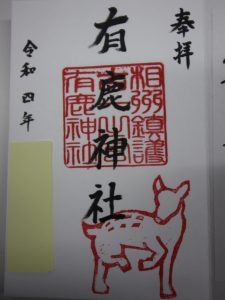 奉拝
有鹿神社
相州鎮護
有鹿神社
令和四年